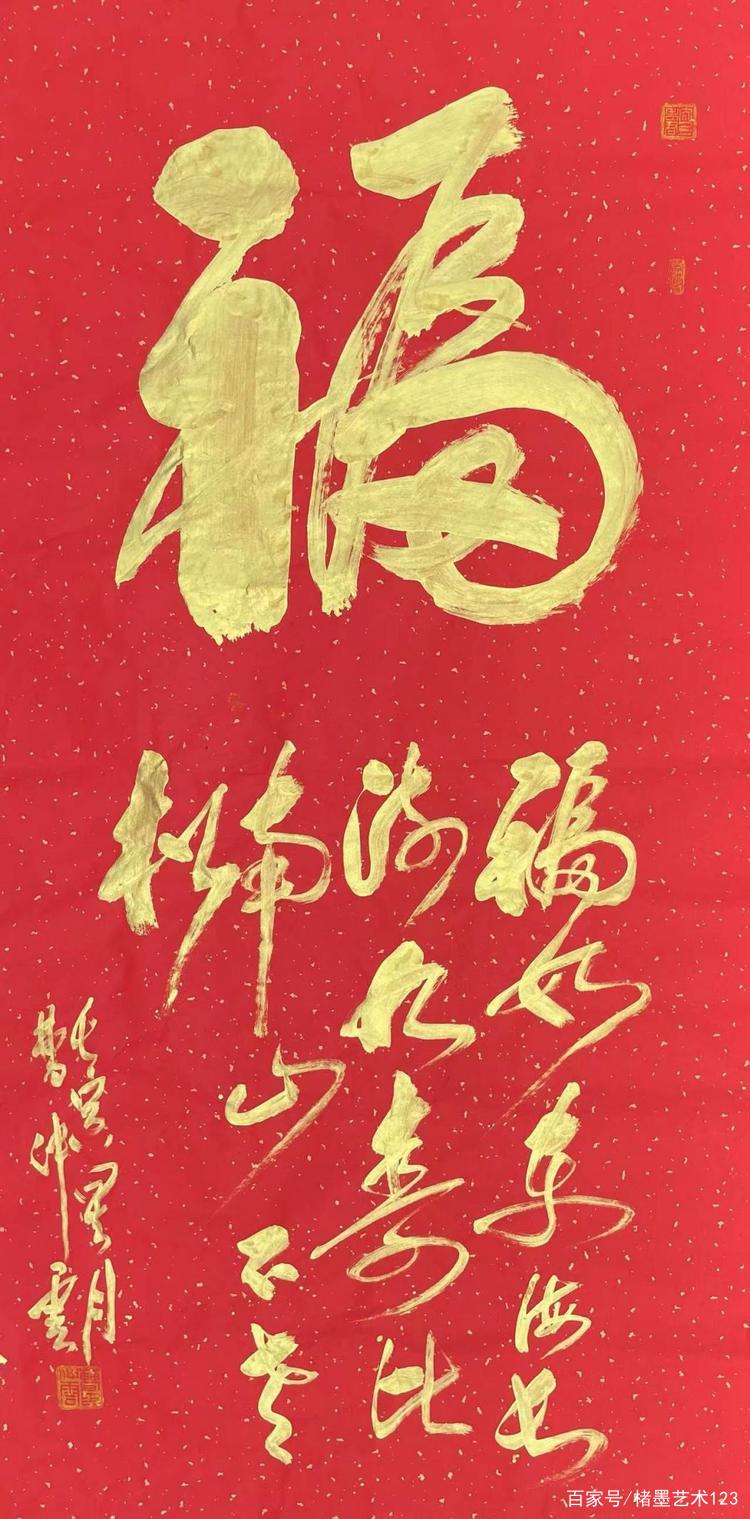 福
福如东海长
流水寿比
南山不老
松
曹
云
月
百家号/楮墨艺术123